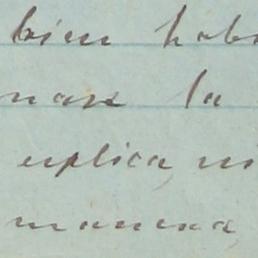 bien hab
nar la
esplica, ni
manera,